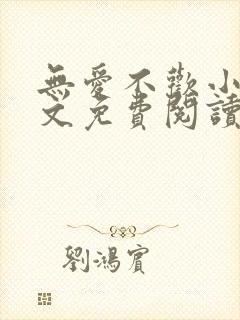 無愛不歡小
文免費閱讀
劉鴻賓